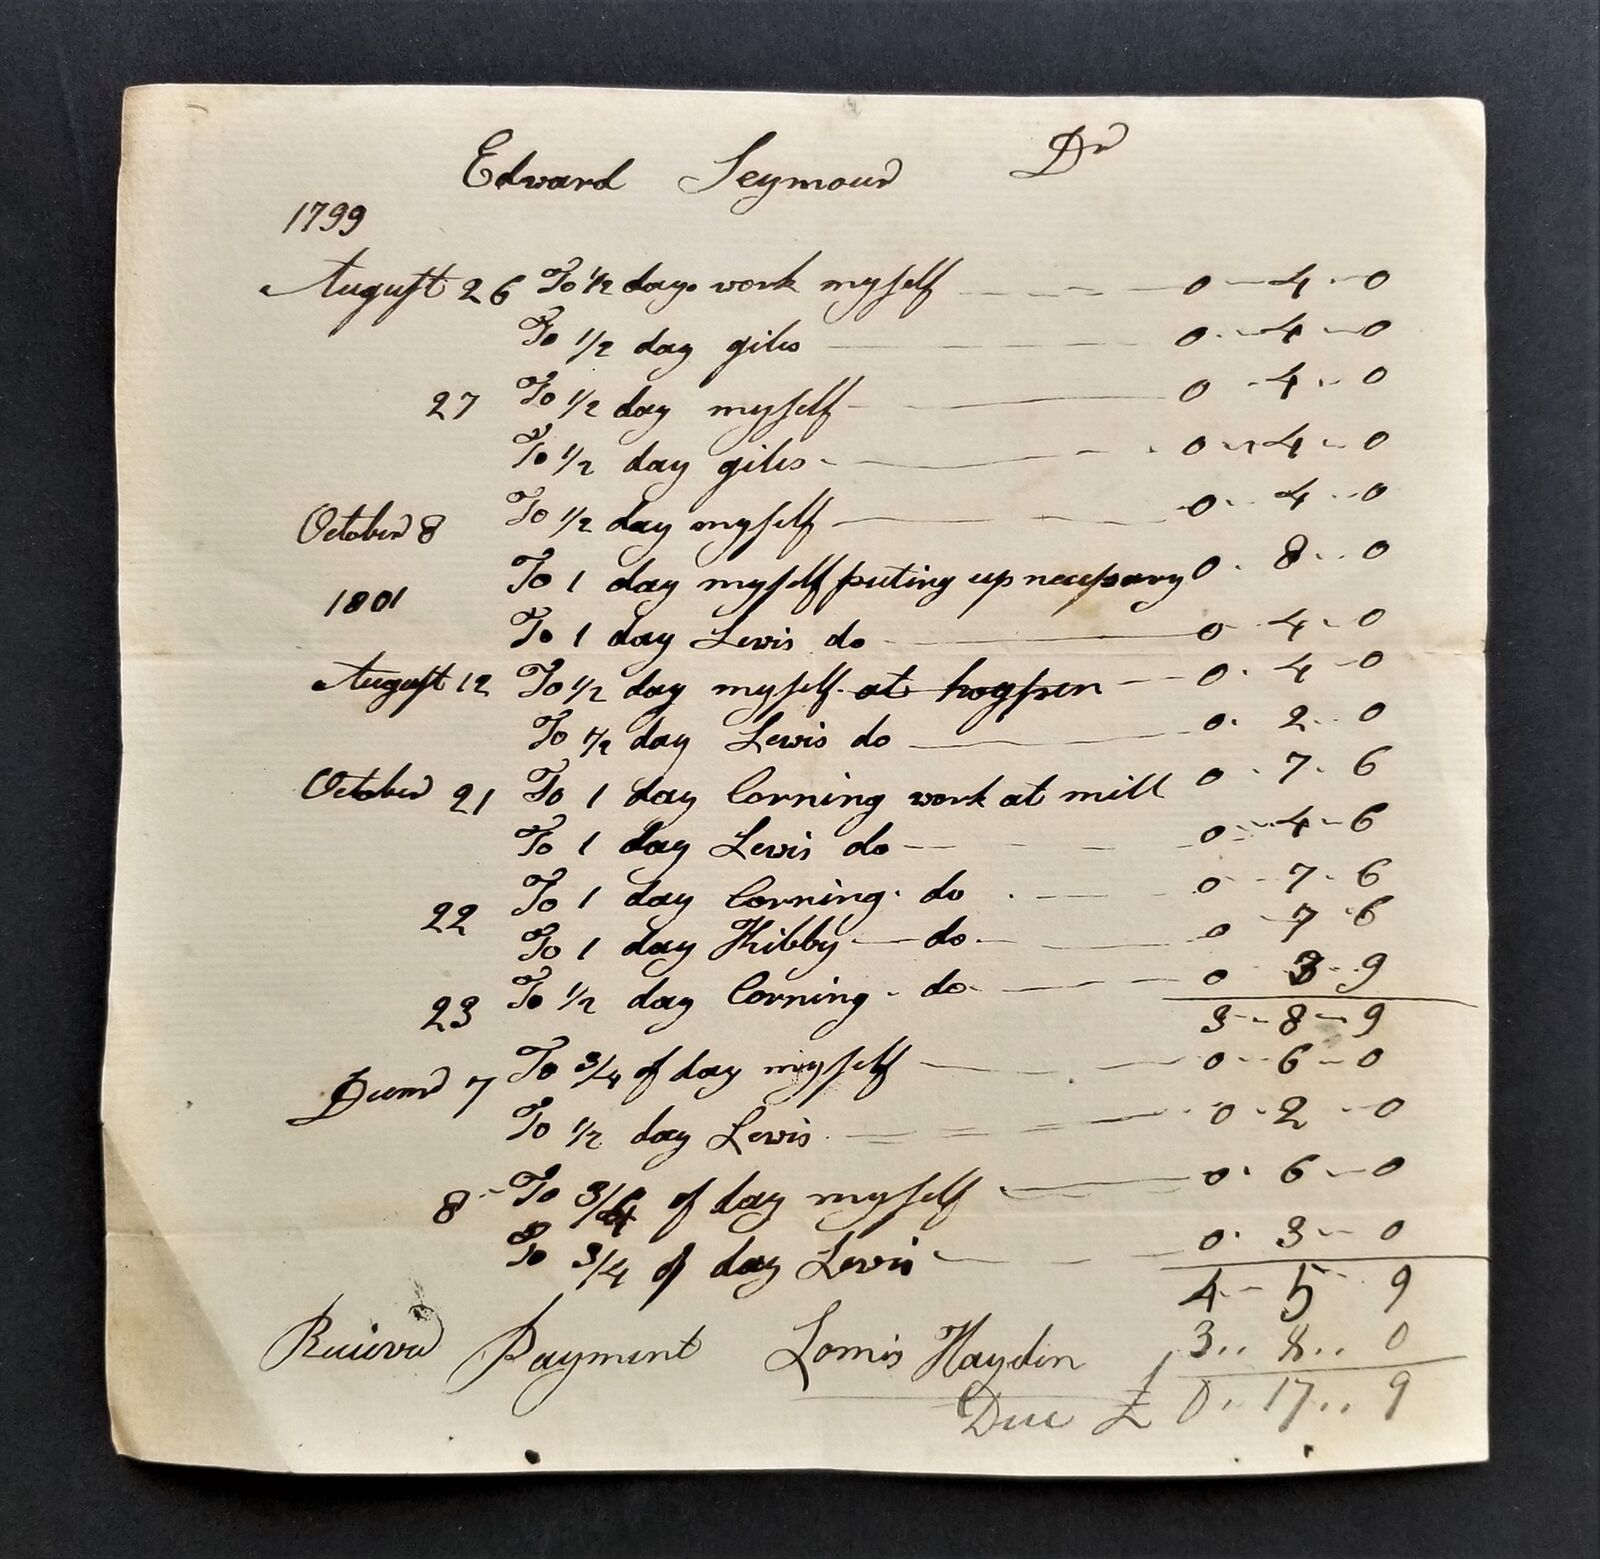 Edward Seymour Dr
1799
August 26 To 1/2 day work myself 0 - 4 - 0
To 1/2 day giles 0 - 4 - 0
27 To 1/2 day myself 0 - 4 - 0
To 1/2 day giles 0 - 4 - 0
October 8 To 1/2 day myself 0 - 4 - 0
To 1 day myself puting up necessary 0 - 8 - 0
1801
To 1 day Lewis do 0 - 4 - 0
August 12 To 1/2 day myself at hogpen 0 - 4 - 0
To 1/2 day Lewis do 0 - 2 - 0
October 21 To 1 day Corning work at mill 0 - 7 - 6
To 1 day Lewis do 0 - 4 - 6
22 To 1 day Corning do 0 - 7 - 6
To 1 day Kibby do 0 - 7 - 6
23 To 1/2 day Corning do 0 - 3 - 9
3 - 8 - 9
Decmr 7 To 3/4 of day myself 0 - 6 - 0
To 1/2 day Lewis 0 - 2 - 0
8 To 3/4 of day myself 0 - 6 - 0
To 3/4 of day Lewis 0 - 3 - 0
4 - 5 - 9
Recievd Payment Lomis Hayden 3 .. 8 .. 0
Due £ 0 .. 17 .. 9